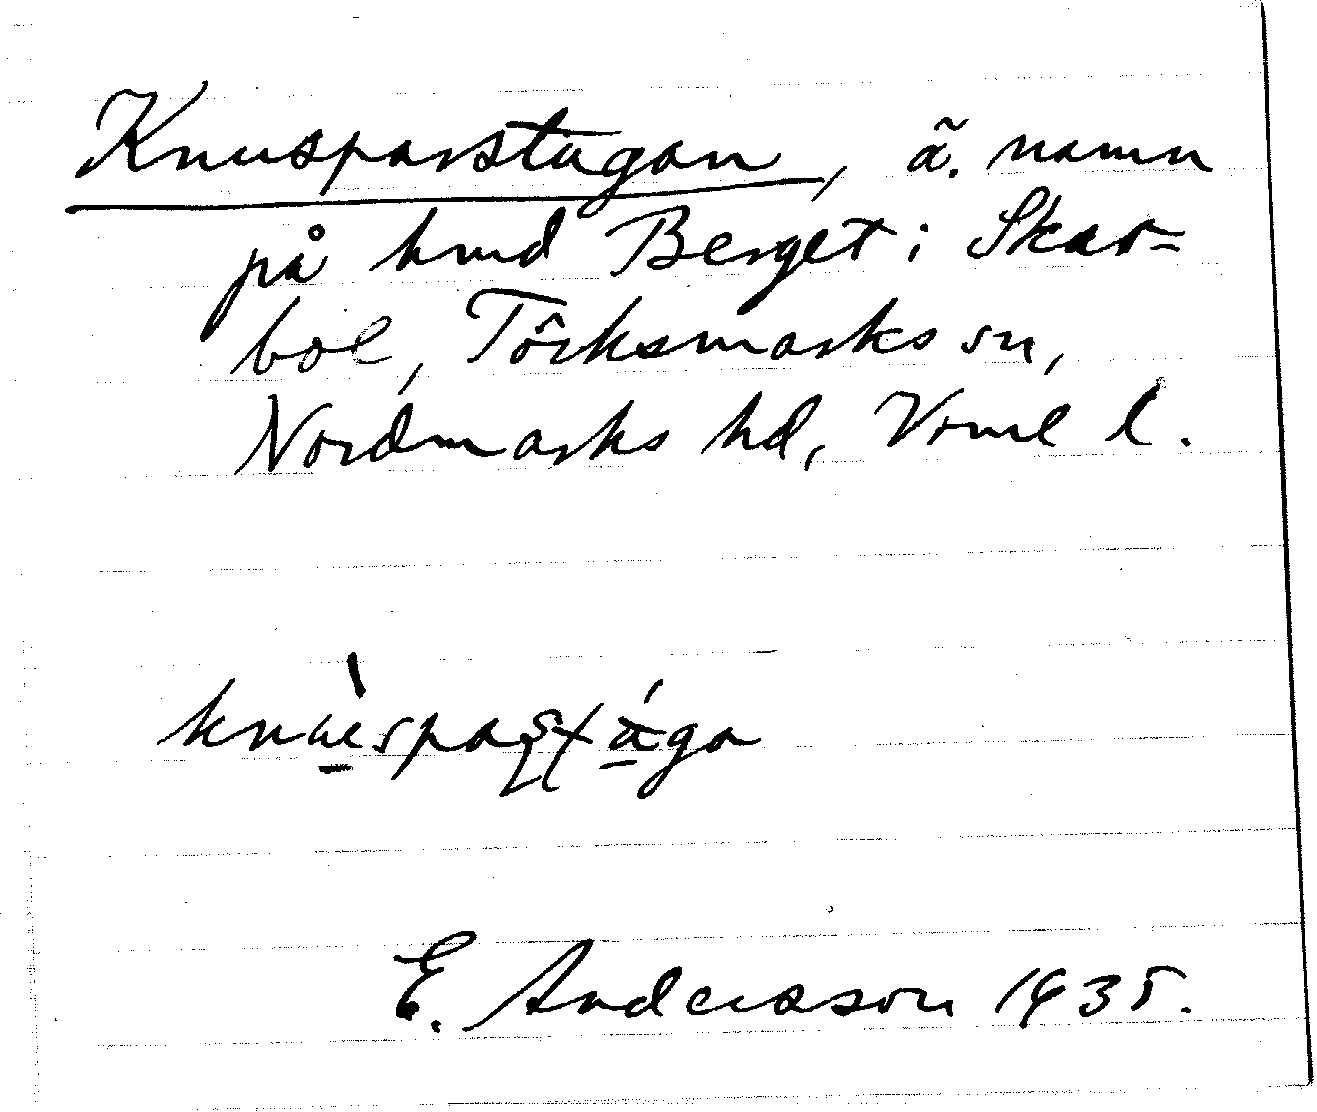 Knusparstugan, ä. namn
på hmd Berget i Skar-
bol, Töcksmarks sn,
Nordmarks hd, Vrml l.
E. Andersson 1935.